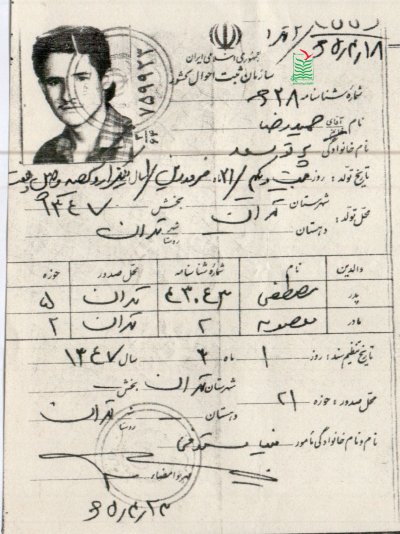 ۶۵/۴/۱۸
جمهوری اسلامی ایران
سازمان ثبت احوال کشور
شماره شناسنامه ۶۲۸
نام آقای حمیدرضا
نام خانوادگی
تاریخ تولد : روز بیست و یکم /۲۱ ماه فروردین /۱ سال یکهزار و سیصد و چهل و هفت
۱۳۴۷
محل تولد : شهرستان تهران بخش
دهستان شهر روستا تهران
والدین نام شماره شناسنامه محل صدور حوزه
پدر مصطفی ۴۳۰۴۳ تهران ۵
مادر معصومه ۲ تهران ۲
تاریخ تنظیم سند : روز ۱ ماه ۴ سال ۱۳۴۷
محل صدور : حوزه ۲۱ شهرستان تهران بخش
دهستان شهر روستا تهران
نام و نام خانوادگی مأمور
مهر و امضاء
۶۵/۴/۲۳
۷۵۹۹۲۳